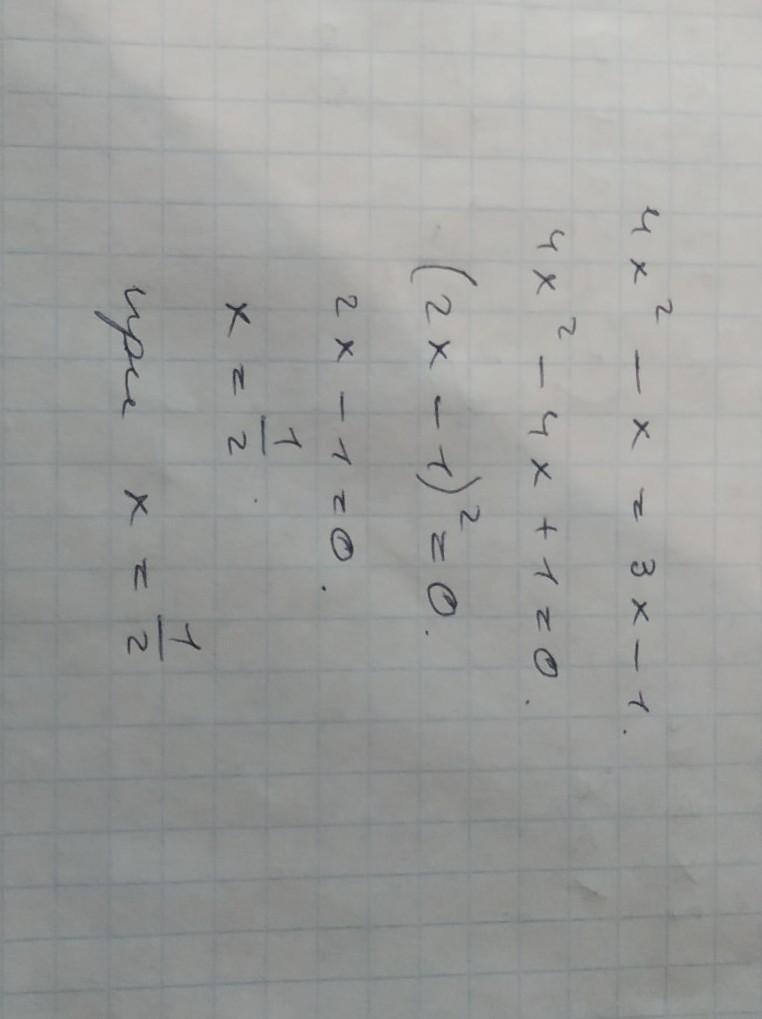 4x² - x = 3x - 1.
4x² - 4x + 1 = 0.
(2x - 1)² = 0.
2x - 1 = 0.
x = 1/2.
при x = 1/2